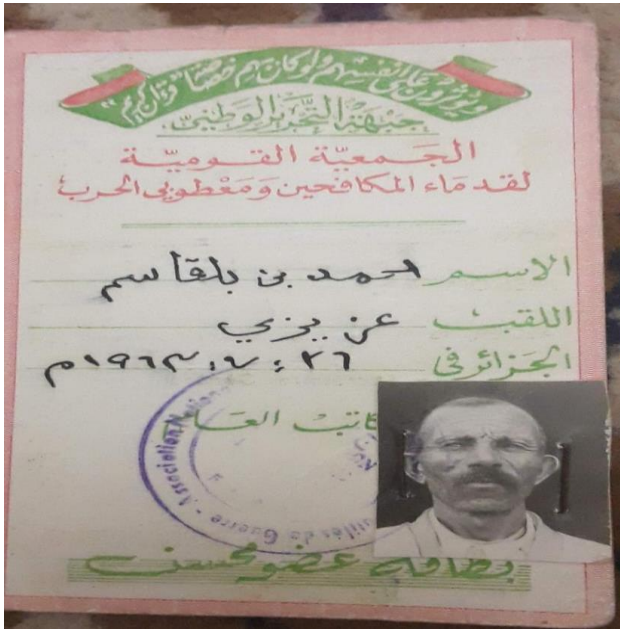 ويؤثرون على انفسهم ولو كان بهم خصاصة "قرآن كريم"
جبهة التحرير الوطني
الجمعية القومية
لقدماء المكافحين ومعطوبي الحرب
الاسم احمد بن بلقاسم
اللقب عزيزي
الجزائر في ٢٦ : ٧ : ١٩٦٣م
كاتب العام
Association Nation
utilés de Guerre
بطاقة عضو محسن